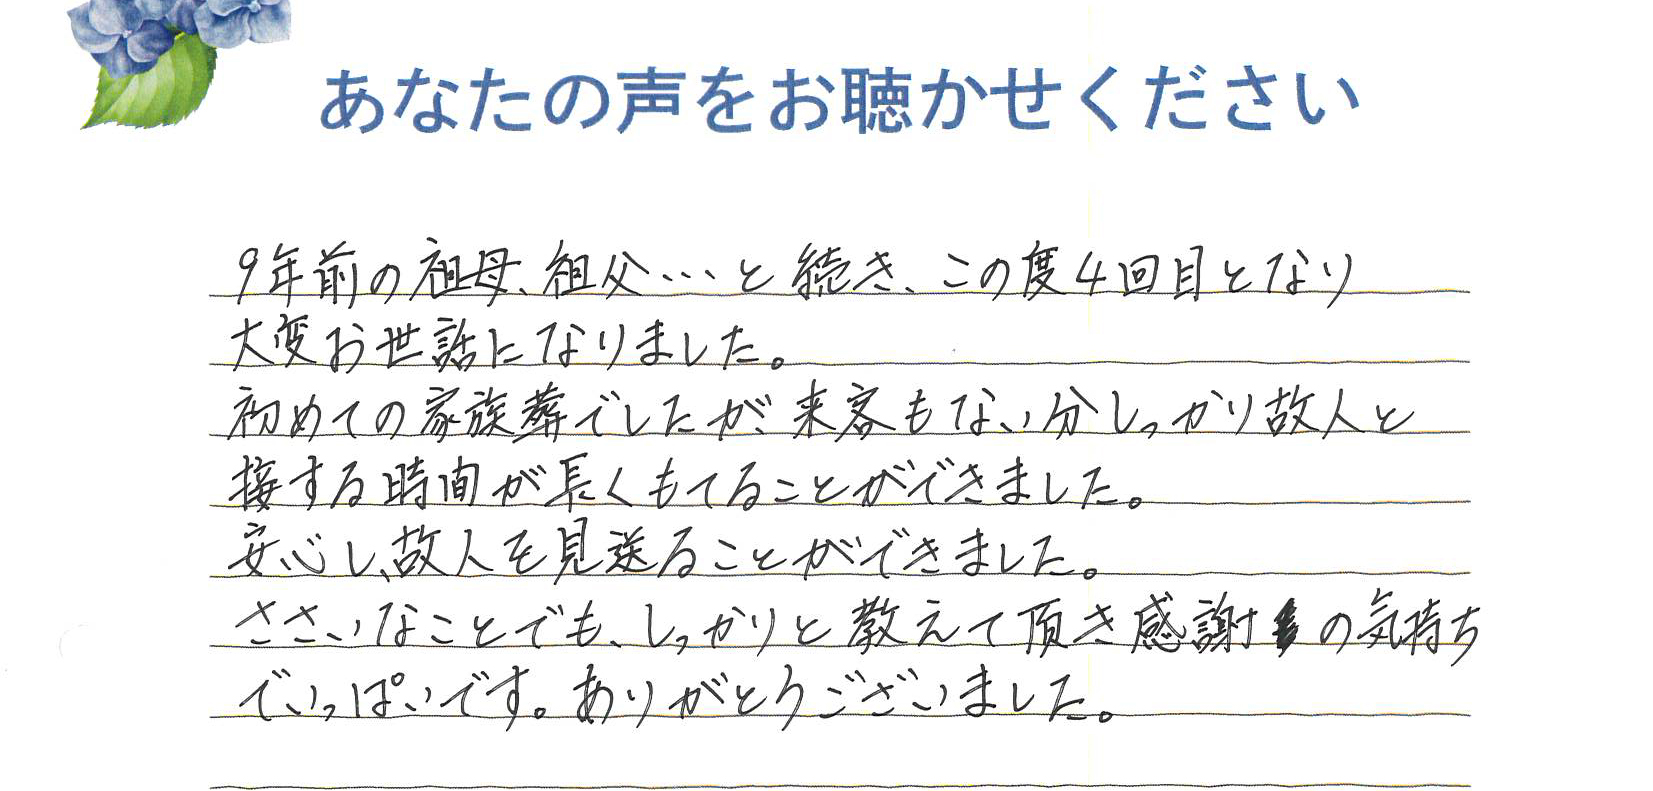 あなたの声をお聴かせください
9年前の祖母、祖父…と続き、この度4回目となり
大変お世話になりました。
初めての家族葬でしたが、来客もない分しっかり故人と
接する時間が長くもてることができました。
安心し、故人を見送ることができました。
ささいなことでも、しっかりと教えて頂き感謝の気持ち
でいっぱいです。ありがとうございました。